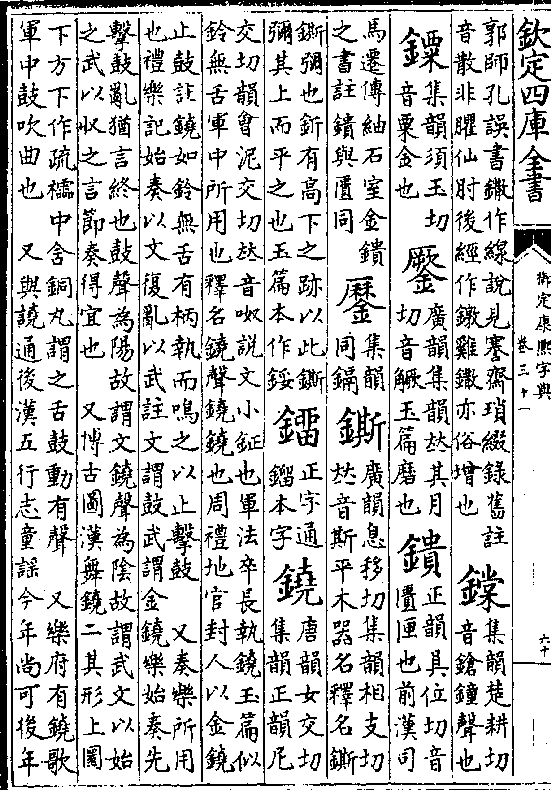 欽定四庫全書
御定康熙字典
卷三十一
六十
郭師孔誤書鏾作線說見蹇齋瑣綴錄舊註
音散非臞仙肘後經作鏾雞鏾亦俗增也
鐣 集韻楚耕切
音鎗鐘聲也
集韻須玉切
音粟金也
廣韻集韻𠀤其月
切音鱖玉篇磨也
鐀 正韻具位切音
匱匣也前漢司
馬遷傳紬石室金鐀
之書註鐀與匱同
集韻
同鎘
鐁 廣韻息移切集韻相支切
𠀤音斯平木器名釋名鐁
鐁彌也釿有高下之跡以此鐁
彌其上而平之也玉篇本作鋖
鐂 正字通
鎦本字
鐃 唐韻女交切
集韻正韻尼
交切韻會泥交切𠀤音呶說文小鉦也軍法卒長執鐃玉篇似
鈴無舌軍中所用也釋名鐃聲鐃鐃也周禮地官封人以金鐃
止鼓註鐃如鈴無舌有柄執而鳴之以止擊鼓 又奏樂所用
也禮樂記始奏以文復亂以武註文謂鼓武謂金鐃樂始奏先
擊鼓亂猶言終也鼓聲為陽故謂文鐃聲為陰故謂武文以始
之武以收之言節奏得宜也 又博古圖漢舞鐃二其形上圜
下方下作疏櫺中含銅丸謂之舌鼓動有聲 又樂府有鐃歌
軍中鼓吹曲也 又與譊通後漢五行志童謡今年尚可後年